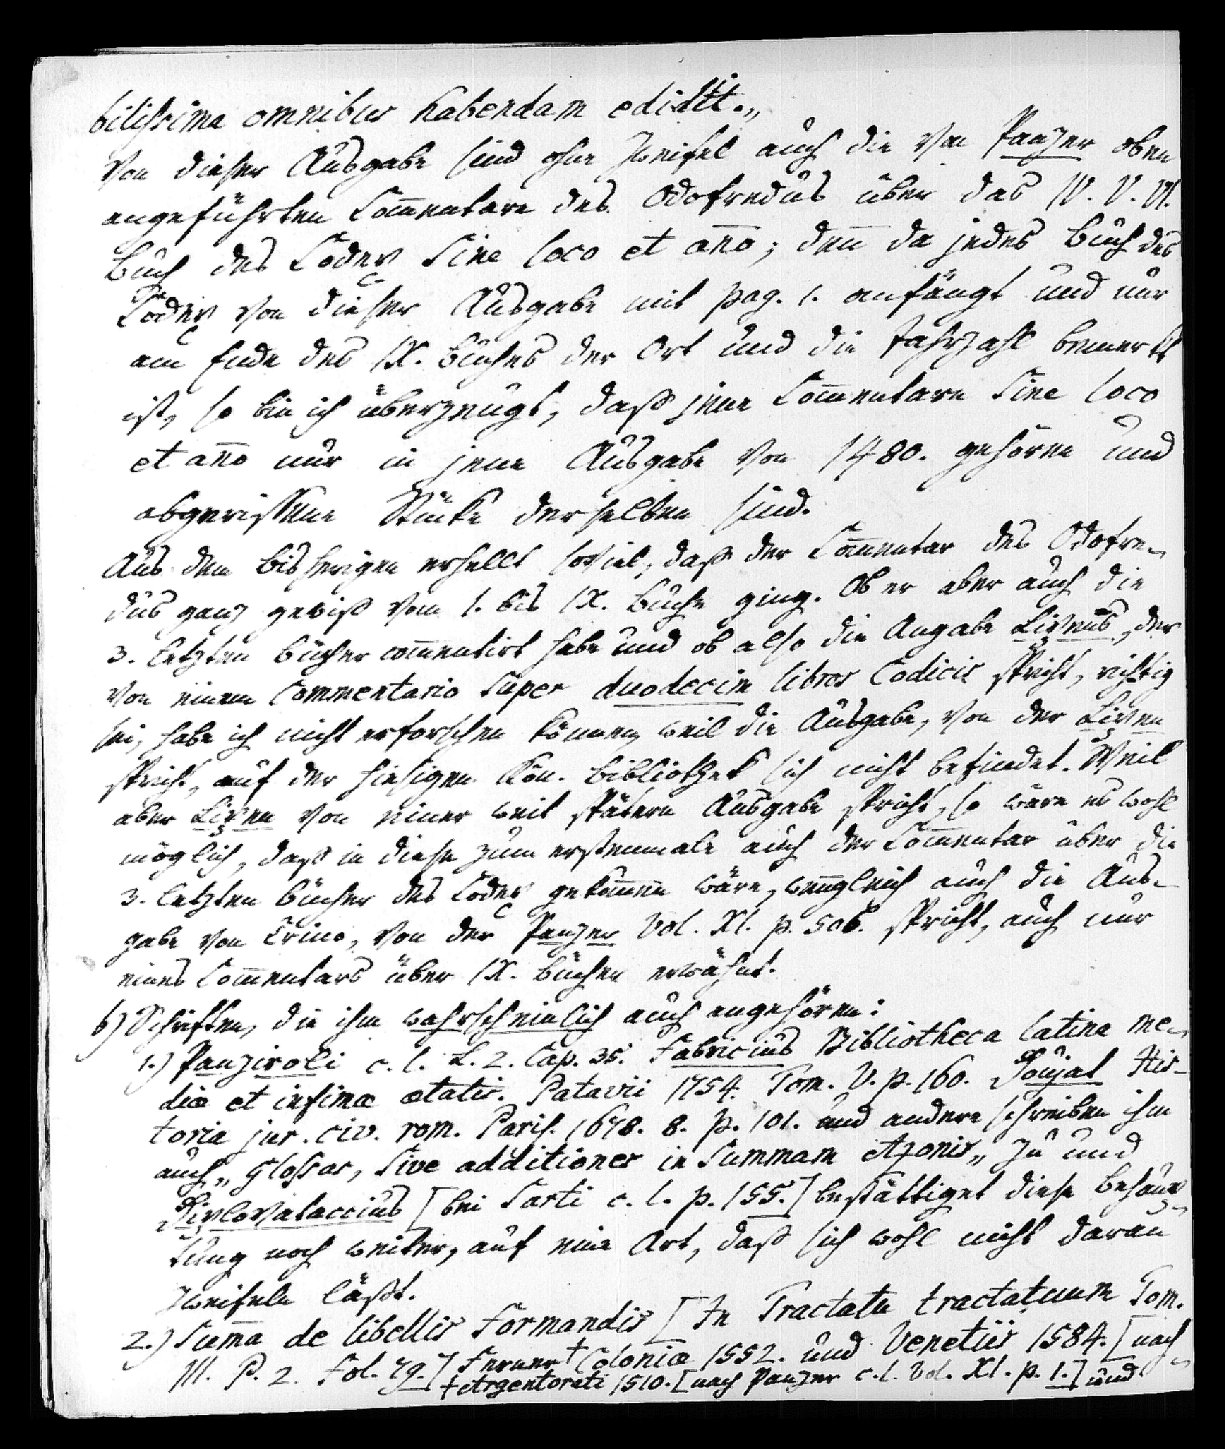 bilissima omnibus habendam edidit.„
Von dieser Ausgabe sind ohne Zweifel auch die von Panzer oben
angeführten Com̅entare des Odofredus über das IV. V. VI.
Buch des Codex sine loco et an̅o; den̅ da jedes Buch des
Codex von dieser Ausgabe mit pag. 1. anfängt und nur
am Ende des IX. Buches der Ort und die Jahrzahl bemerkt
ist, so bin ich überzeugt, daß jene Com̅entare sine loco
et an̅o nur in jene Ausgabe von 1480. gehören und
abgerissene Stücke derselben sind.
Aus dem bisherigen erhellt soviel, daß der Com̅entar des Odofre-
dus ganz gewiß vom 1. bis IX. Buche ging. Ob er aber auch die
3. letzten Bücher com̅entirt habe und ob also die Angabe Lipens, der
von einem Commentario super duodecim libros Codicis spricht, richtig
sei, habe ich nicht erforschen können, weil die Ausgabe, von der Lipen
spricht, auf der hiesigen Kön. Bibliothek sich nicht befindet. Weil
aber Lipen von einer weit spätern Ausgabe spricht, so wäre es wohl
möglich, daß in diese zum erstenmale auch der Com̅entar über die
3. letzten Bücher des Codex gekom̅en wäre, wen̅gleich auch die Aus-
gabe von Trino, von der Panzer Vol. XI. p. 506. spricht, auch nur
eines Com̅entars über IX. Bücher erwähnt.
b) Schriften, die ihm wahrscheinlich auch angehören:
1.) Panziroli c. l. L. 2. Cap. 35. Fabricius Bibliotheca latina me-
diæ et infimæ ætatis. Patavii 1754. Tom. V. p. 160. Doujat His-
toria jur. civ. rom. Paris. 1678. 8. p. 101. und andere schreiben ihm
auch „Glossas, sive additiones in Summam Azonis„ zu und
Diplovataccius [bei Sarti c. l. p. 155.] bestättiget diese Behaup-
tung noch weiter, auf eine Art, daß sich wohl nicht daran
zweifeln läßt.
2.) Sum̅a de libellis formandis [In Tractatu tractatuum Tom.
III. P. 2. Fol. 79.] Ferner + Coloniæ 1552. und Venetiis 1584. [nach
+ Argentorati 1510. [nach Panzer c. l. Vol. XI. p. 1.] und